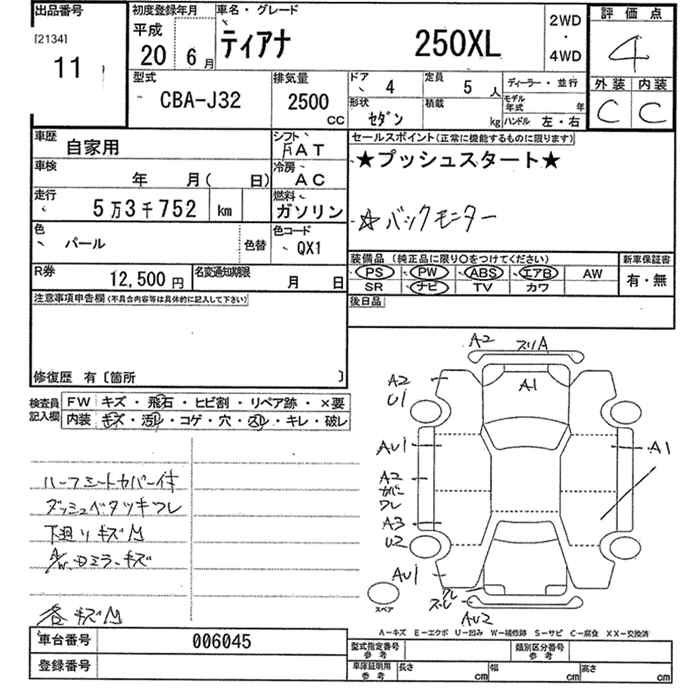 出品番号
[2134]
11
初度登録年月
平成
20 6月
車名・グレード
ティアナ 250XL
2WD
・
4WD
評価点
4
外装 内装
C C
型式
CBA-J32
排気量
2500
CC
ドア
4
定員
5 人
ディーラー・並行
形状
セダン
積載
kg
モデル年式 年
ハンドル 左・右
車歴
自家用
シフト
F AT
車検
年 月( 日)
冷房
AC
走行
5万3千752 km
燃料
ガソリン
色
パール
色替
色コード
QX1
R券
12,500円
名変通知期限
月 日
セールスポイント(正常に機能するものに限ります)
★プッシュスタート★
☆バックモニター
装備品(純正品に限り○をつけてください)
新車保証書
PS PW ABS エアB AW
有・無
SR ナビ TV カワ
後日品
注意事項申告欄(不具合内容等は具体的に記入して下さい)
修復歴 有〔箇所 〕
検査員記入欄
FW キズ・飛石・ヒビ割・リペア跡・×要
内装 キズ・汚レ・コゲ・穴・スレ・キレ・破レ
ハーフシートカバー付
ダッシュベタツキワレ
下廻りキズ凹
A/W, Dミラーキズ
各キズ凹
A2
スリA
A2
U1
A1
AU1
A1
A2
カバー
ワレ
A3
U2
AU1
ワレ
AU2
スペア
A-キズ E-エクボ U-凹み W-補修跡 S-サビ C-腐食 XX-交換済
車台番号
006045
登録番号
型式指定番号
参考
類別区分番号
参考
車庫証明用
参考
長さ cm
幅 cm
高さ cm